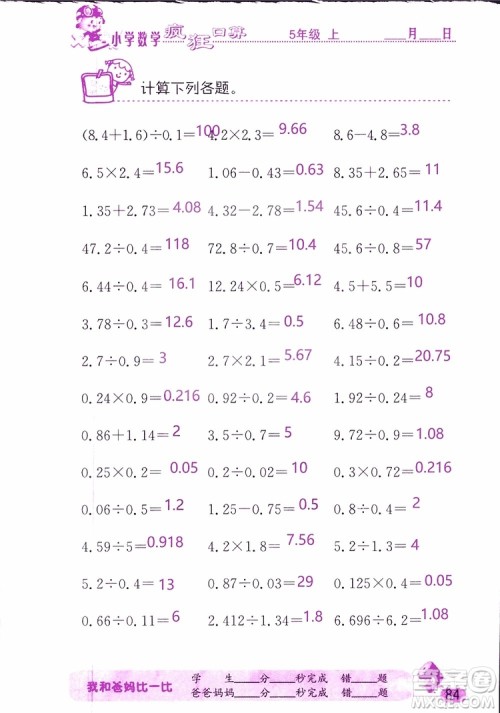 小学数学 疯狂口算 5年级 上 ____月____日
计算下列各题。
(8.4+1.6)÷0.1=100 4.2×2.3= 9.66 8.6-4.8= 3.8
6.5×2.4= 15.6 1.06-0.43= 0.63 8.35+2.65= 11
1.35+2.73= 4.08 4.32-2.78= 1.54 45.6÷0.4= 11.4
47.2÷0.4= 118 72.8÷0.7= 10.4 45.6÷0.8= 57
6.44÷0.4= 16.1 12.24×0.5= 6.12 4.5+5.5= 10
3.78÷0.3= 12.6 1.7÷3.4= 0.5 6.48÷0.6= 10.8
2.7÷0.9= 3 2.7×2.1= 5.67 4.15÷0.2= 20.75
0.24×0.9= 0.216 0.92÷0.2= 4.6 1.84÷0.23= 8
0.86+1.14= 2 0.9÷0.18= 5 9.72÷0.9= 1.08
0.25×0.2= 0.05 0.2÷0.02= 10 0.72×0.3= 0.216
0.06÷0.05= 1.2 1.25-0.75= 0.5 0.8÷0.4= 2
4.59÷5= 0.918 4.2×1.8= 7.56 5.2÷1.3= 4
5.2÷0.4= 13 0.87÷0.03= 29 0.125×0.4= 0.05
0.66÷0.11= 6 2.412÷1.34= 1.8 6.696÷6.2= 1.08
我和爸妈比一比 学 生____分____秒完成 错____题
爸爸妈妈____分____秒完成 错____题
84